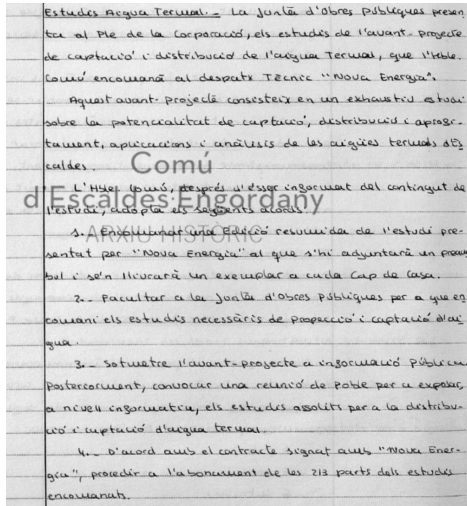 Estudis Acgua Termal._ La Junta d'Obres Públiques presen
ta al Ple de la Corporació, els estudis de l'avant-projecte
de captació i distribució de l'aigua Termal, que l'Hble.
Comú encomanà al despatx Tècnic "Nova Energia".
Aquest avant-projecte consisteix en un exhaustiu estudi
sobre la potencialitat de captació, distribució i aprofi-
tament, aplicacions i anàlisis de les aigües termals d'Es
caldes.
Comú
d'Escaldes Engordany
ARXIU HISTÒRIC
L'Hble. Comú, després d'ésser informat del contingut de
l'estudi, adopta els següents acords:
1._ Encomanar una Edició resumida de l'estudi pre-
sentat per "Nova Energia" al que s'hi adjuntarà un pream
bul i se'n lliurarà un exemplar a cada Cap de Casa.
2._ Facultar a la Junta d'Obres Públiques per a que en
comani els estudis necessàris de prospecció i captació d'ai
gua.
3._ Sotmetre l'avant-projecte a informació pública
Posteriorment, convocar una reunió de Poble per a exposar,
a nivell informatiu, els estudis assolits per a la distribu-
ció i captació d'aigua termal.
4._ D'acord amb el contracte signat amb "Nova Ener-
gia", procedir a l'abonament de les 2/3 parts dels estudis
encomanats.